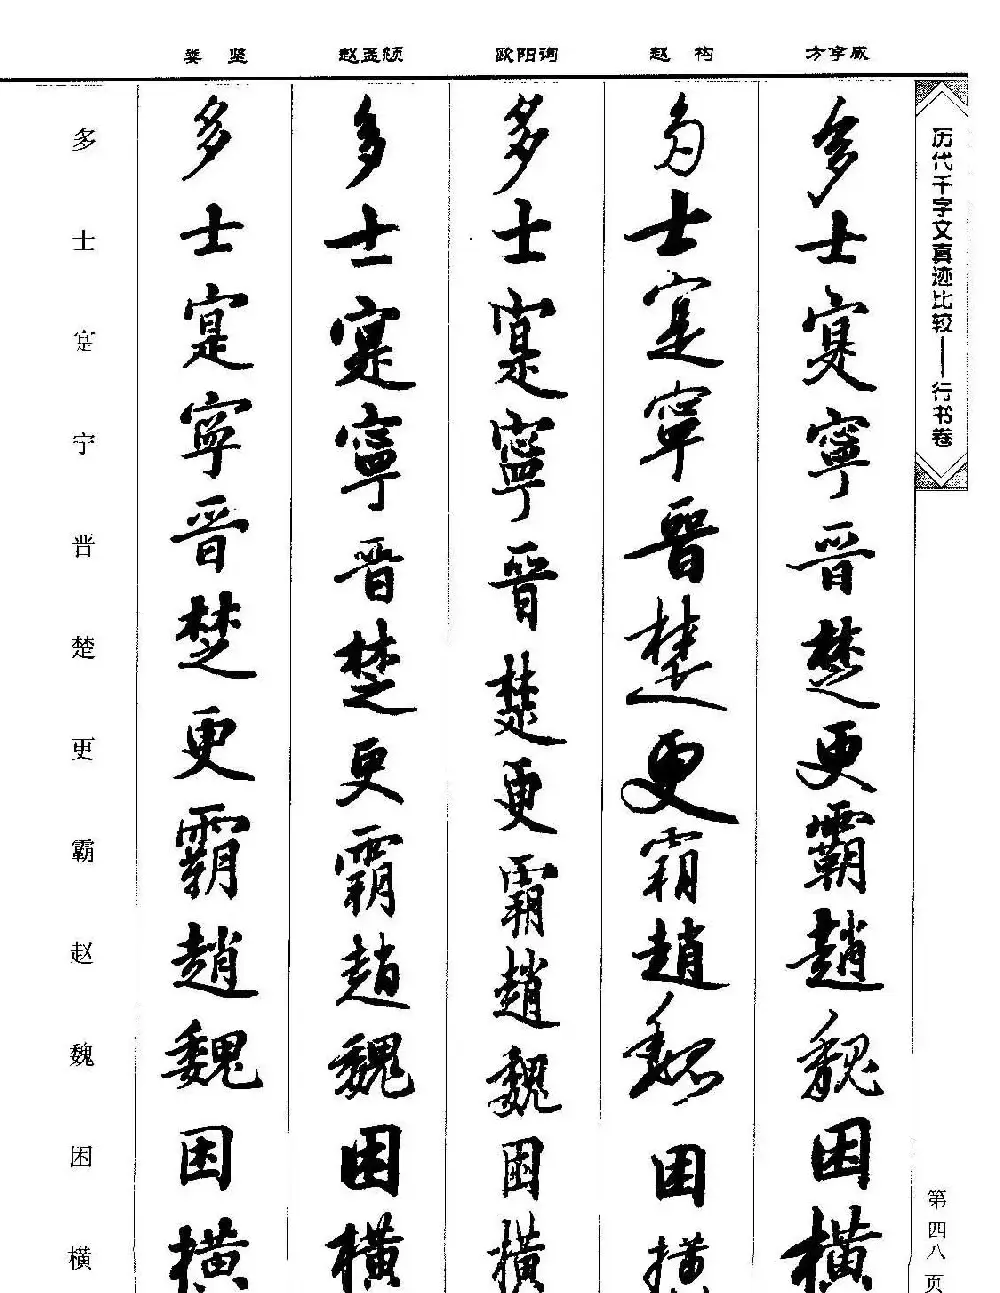 娄 坚 赵孟頫 欧阳询 赵 构 方孝孺
历代千字文真迹比较——行书卷
第四八页
多士寔寧晋楚更霸趙魏困横
多士寔寧晋楚更霸趙魏困横
多士寔寧晉楚更霸趙魏困横
多士寔寧晋楚更霸趙魏困横
多士寔寧晋楚更霸趙魏困横
多士寔宁晋楚更霸赵魏困横